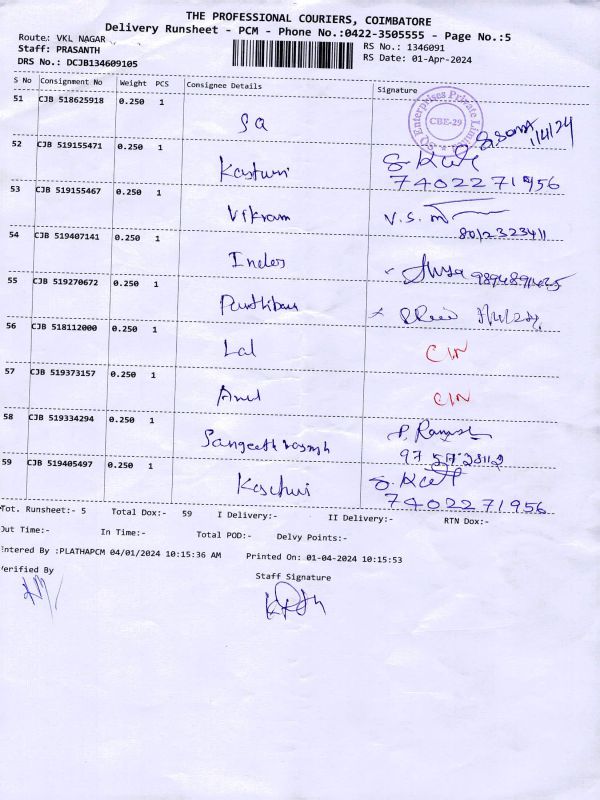 THE PROFESSIONAL COURIERS, COIMBATORE
Delivery Runsheet - PCM - Phone No.:0422-3505555 - Page No.:5
Route: VKL NAGAR
RS No.: 1346091
Staff: PRASANTH
RS Date: 01-Apr-2024
DRS No.: DCJB134609105
S No Consignment No Weight PCS Consignee Details Signature
51 CJB 518625918 0.250 1 SQ 1/4/24
CBE-29
52 CJB 519155471 0.250 1 Kasturi
7402271956
53 CJB 519155467 0.250 1 Vikram V.S.
8012323411
54 CJB 519407141 0.250 1 Indos
55 CJB 519270672 0.250 1 Parthiban
56 CJB 518112000 0.250 1 Lal CIN
57 CJB 519373157 0.250 1 Anul CIN
58 CJB 519334294 0.250 1 P. Ramesh
59 CJB 519405497 0.250 1 Kasthuri
7402271956
Tot. Runsheet:- 5 Total Dox:- 59 I Delivery:- II Delivery:- RTN Dox:-
Out Time:- In Time:- Total POD:- Delvy Points:-
Entered By :PLATHAPCM 04/01/2024 10:15:36 AM Printed On: 01-04-2024 10:15:53
Verified By
Staff Signature